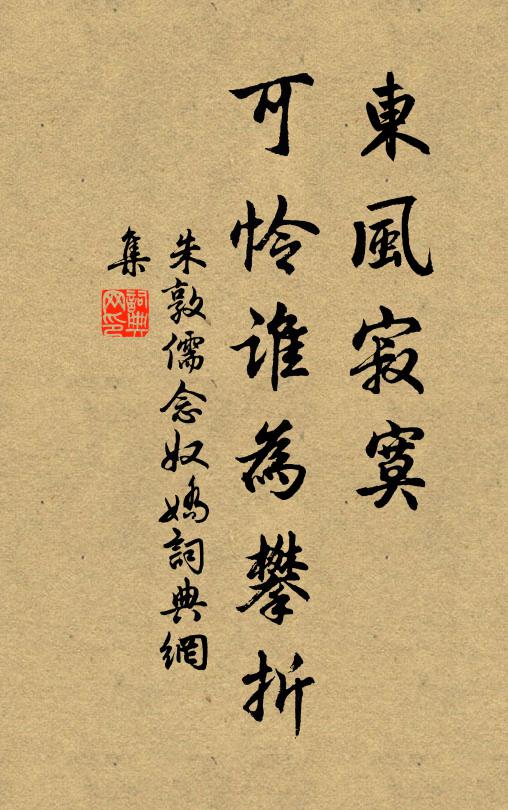 東風寂寞
可怜誰為攀折
朱敦儒念奴嬌詞典網
集
詞典
网印